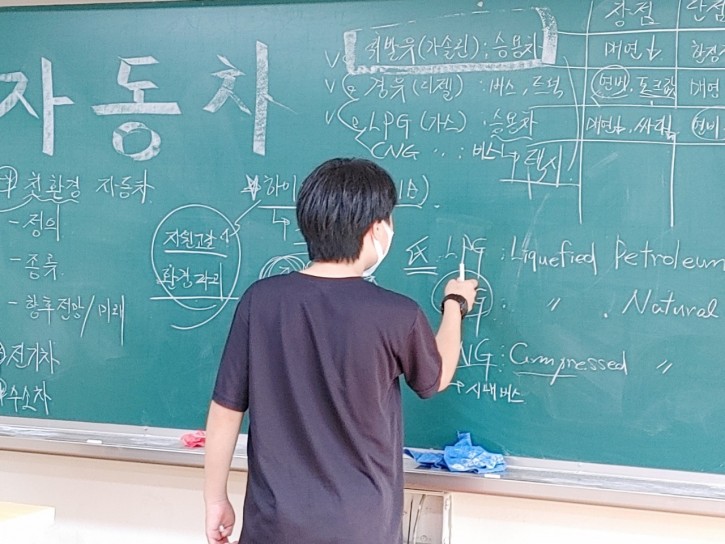 자동차
휘발유(가솔린) : 승용차
경유(디젤) : 버스, 트럭
LPG (가스) : 승용차
CNG 〃 : 버스
택시
장점 단점
매연↓
연비, 토크값 매연
매연↓, 싸다 연비
친환경 자동차
- 정의
- 종류
- 향후전망/미래
전기차
수소차
하이
자원고갈
환경파괴
LPG : Liquefied Petroleum
〃 Natural
NG : Compressed 〃
→ 시내버스